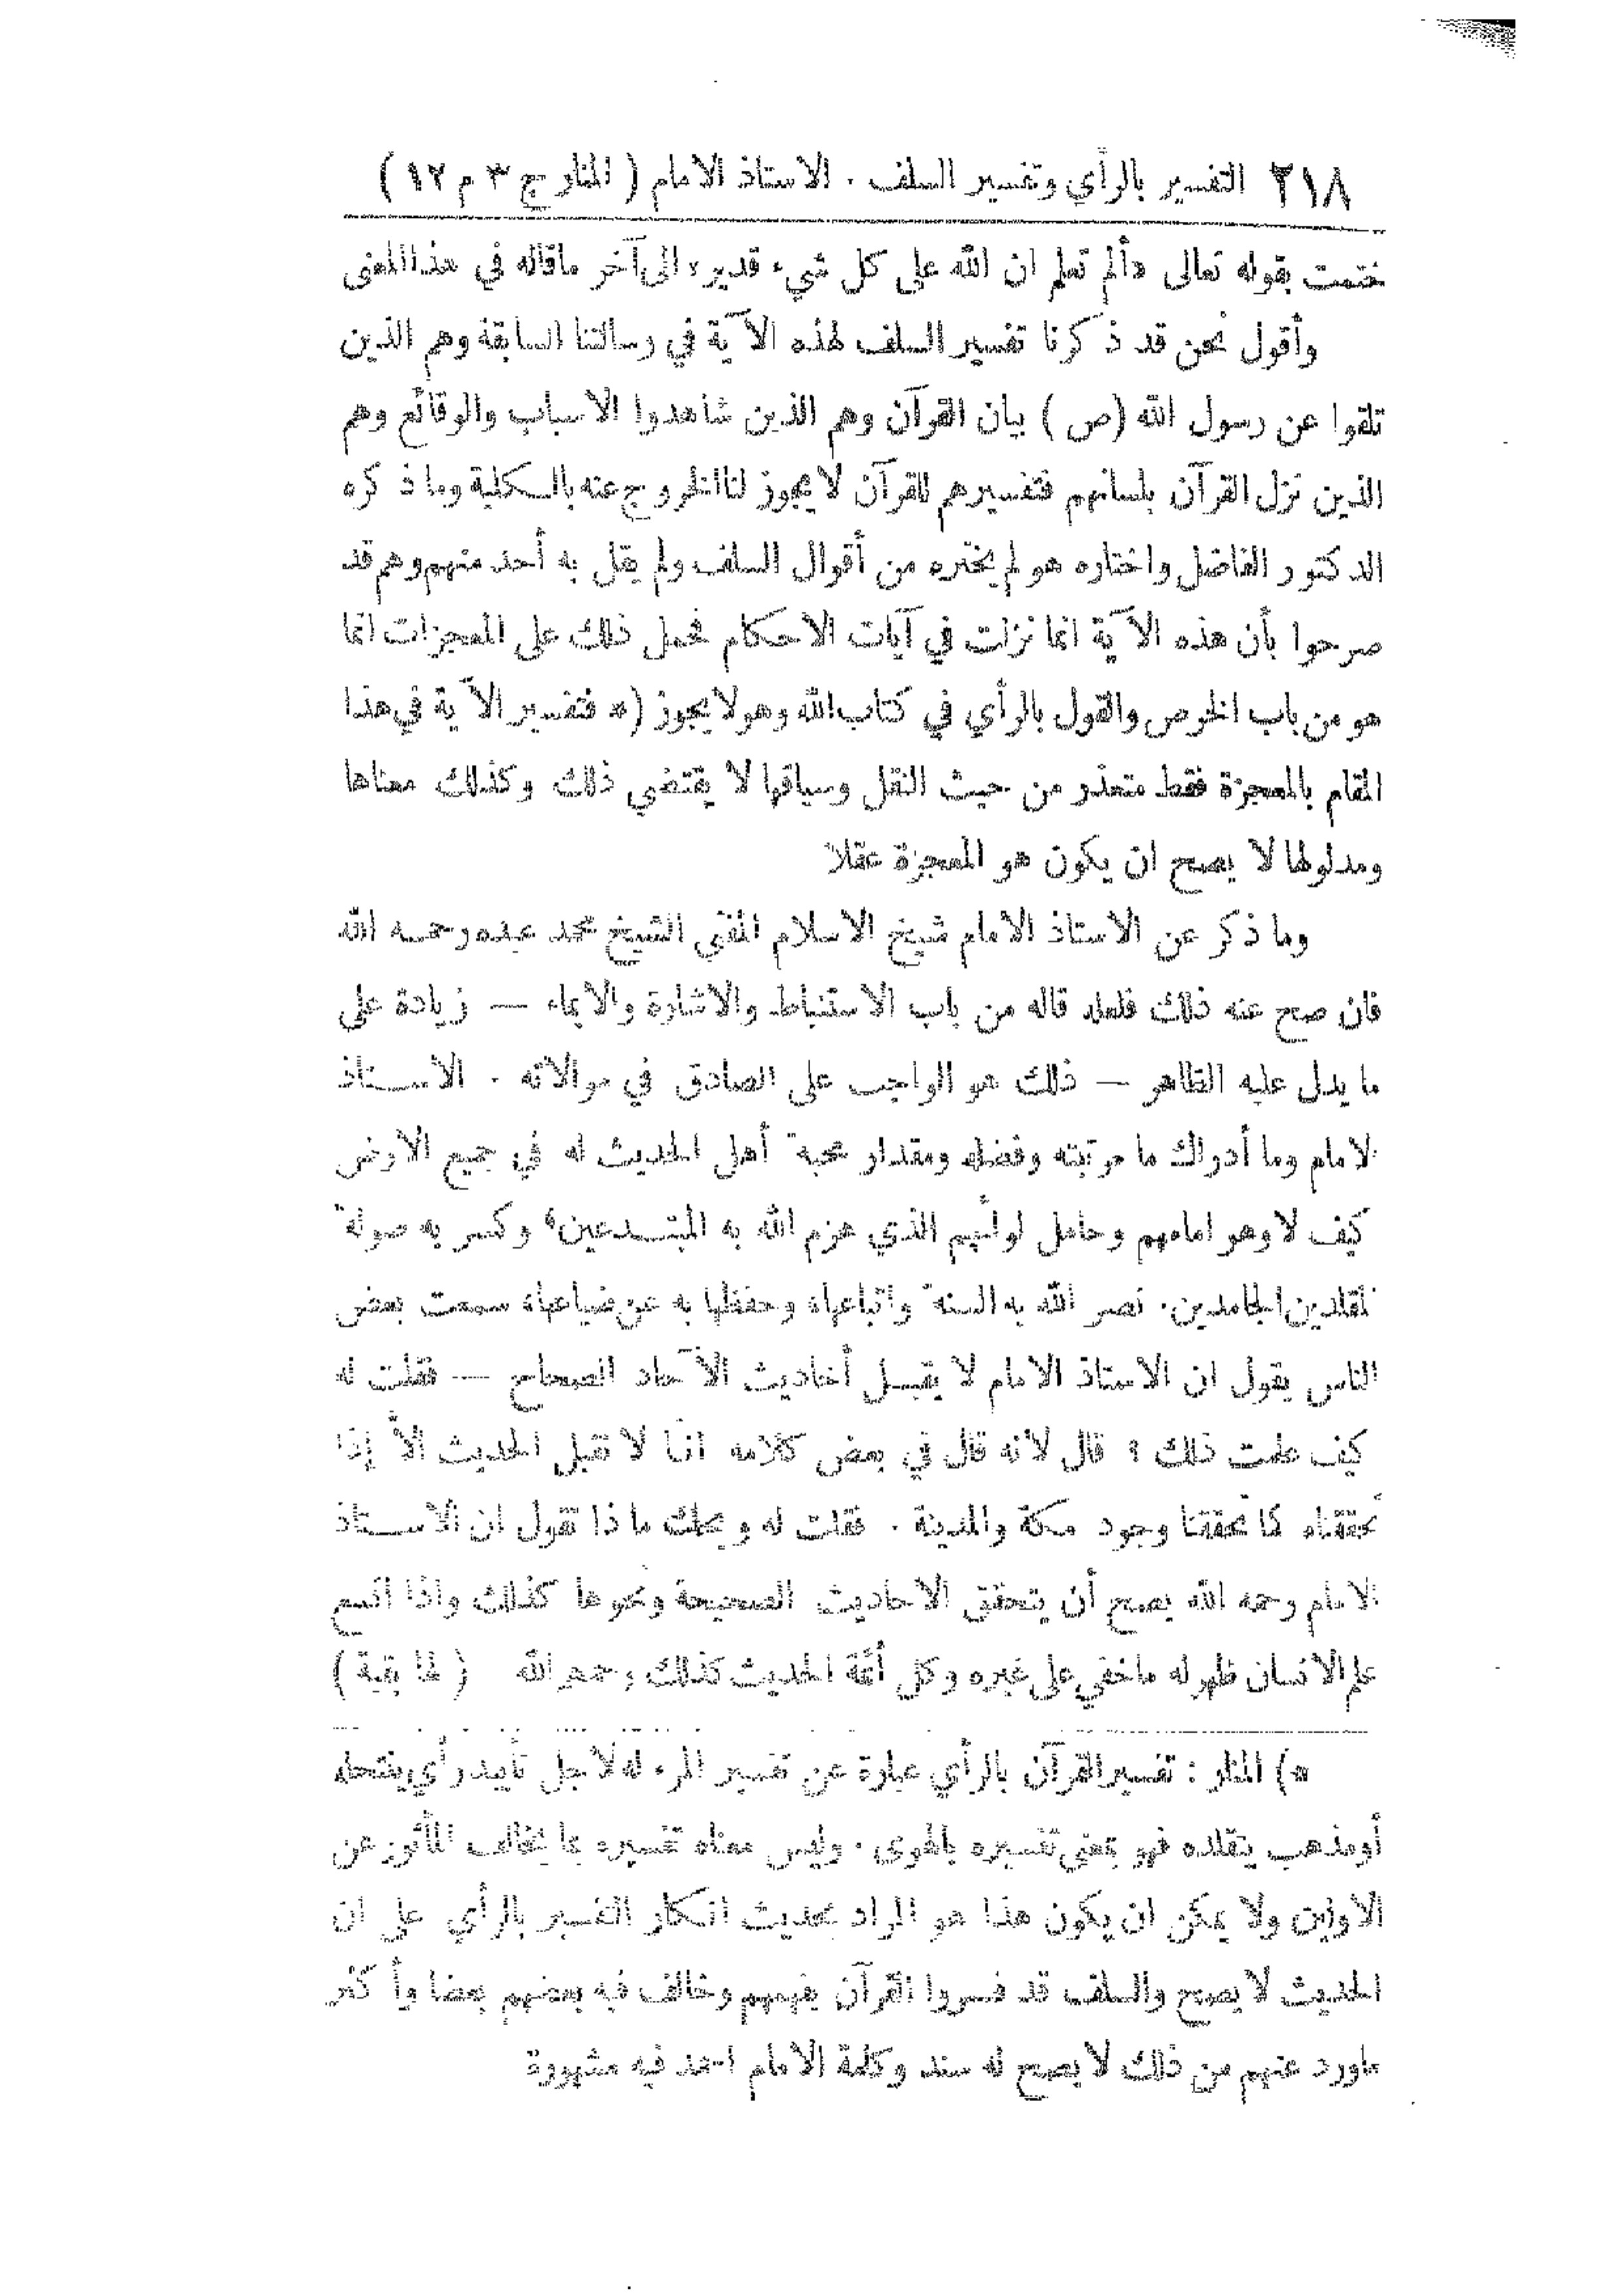 ٢١٨ التفسير بالرأي وتفسير السلف . الاستاذ الامام ( المنار ج ٣ م ١٢ )
ختمت بقوله تعالى «ألم تعلم ان الله على كل شيء قدير» الى آخر ماقاله في هذا المعنى
وأقول نحن قد ذكرنا تفسير السلف لهذه الآية في رسالتنا السابقة وهم الذين
تلقوا عن رسول الله (ص) بيان القرآن وهم الذين شاهدوا الاسباب والوقائع وهم
الذين نزل القرآن بلسانهم فتفسيرهم للقرآن لايجوز لنا الخروج عنه بالكلية وماذكره
الدكتور الفاضل واختاره هو لم يختره من أقوال السلف ولم يقل به أحد منهم وهم قد
صرحوا بأن هذه الآية انما نزلت في آيات الاحكام فحمل ذلك على المعجزات انما
هو من باب الخرص والقول بالرأي في كتاب الله وهو لايجوز (* فتفسير الآية في هذا
المقام بالمعجزة فقط متعذر من حيث النقل وسياقها لا يقتضي ذلك وكذلك معناها
ومدلولها لا يصح ان يكون هو المعجزة عقلا
وما ذكر عن الاستاذ الامام شيخ الاسلام المفتي الشيخ محمد عبده رحمه الله
فان صح عنه ذلك فلعله قاله من باب الاستنباط والاشارة والايماء — زيادة على
ما يدل عليه الظاهر — ذلك هو الواجب على الصادق في موالاته . الاستاذ
لامام وما أدراك ما مرتبته وفضله ومقدار محبة أهل الحديث له في جميع الارض
كيف لا وهو امامهم وحامل لوائهم الذي هزم الله به المبتدعين، وكسر به صولة
لقلدين الجامدين. نصر الله به السنة واتباعها، وحفظها به عن ضياعها، سمعت بعض
الناس يقول ان الاستاذ الامام لا يقبل أحاديث الآحاد الصحاح — فقلت له
كيف علمت ذلك ؟ قال لانه قال في بعض كلامه اننا لا نقبل الحديث الاّ إذا
تحققناه كما تحققنا وجود مكة والمدينة . فقلت له ويحك ماذا تقول ان الاستاذ
الامام رحمه الله يصح أن يتحقق الاحاديث الصحيحة ونحوها كذلك واذا اتسع
علم الانسان ظهر له ماخفي على غيره وكل أئمة الحديث كذلك رحمهم الله ( لها بقية )
*) المنار : تفسير القرآن بالرأي عبارة عن تفسير المرء له لاجل تأييد رأي ينتحله
أو مذهب يقلده فهو بمعنى تفسيره بالهوى . وليس معناه تفسيره بما يخالف المأثور عن
الاولين ولا يمكن ان يكون هذا هو المراد بحديث انكار التفسير بالرأي على ان
الحديث لا يصح والسلف قد فسروا القرآن بفهمهم وخالف فيه بعضهم بعضا وأكثر
ماورد عنهم من ذلك لا يصح له سند وكلمة الامام احمد فيه مشهورة